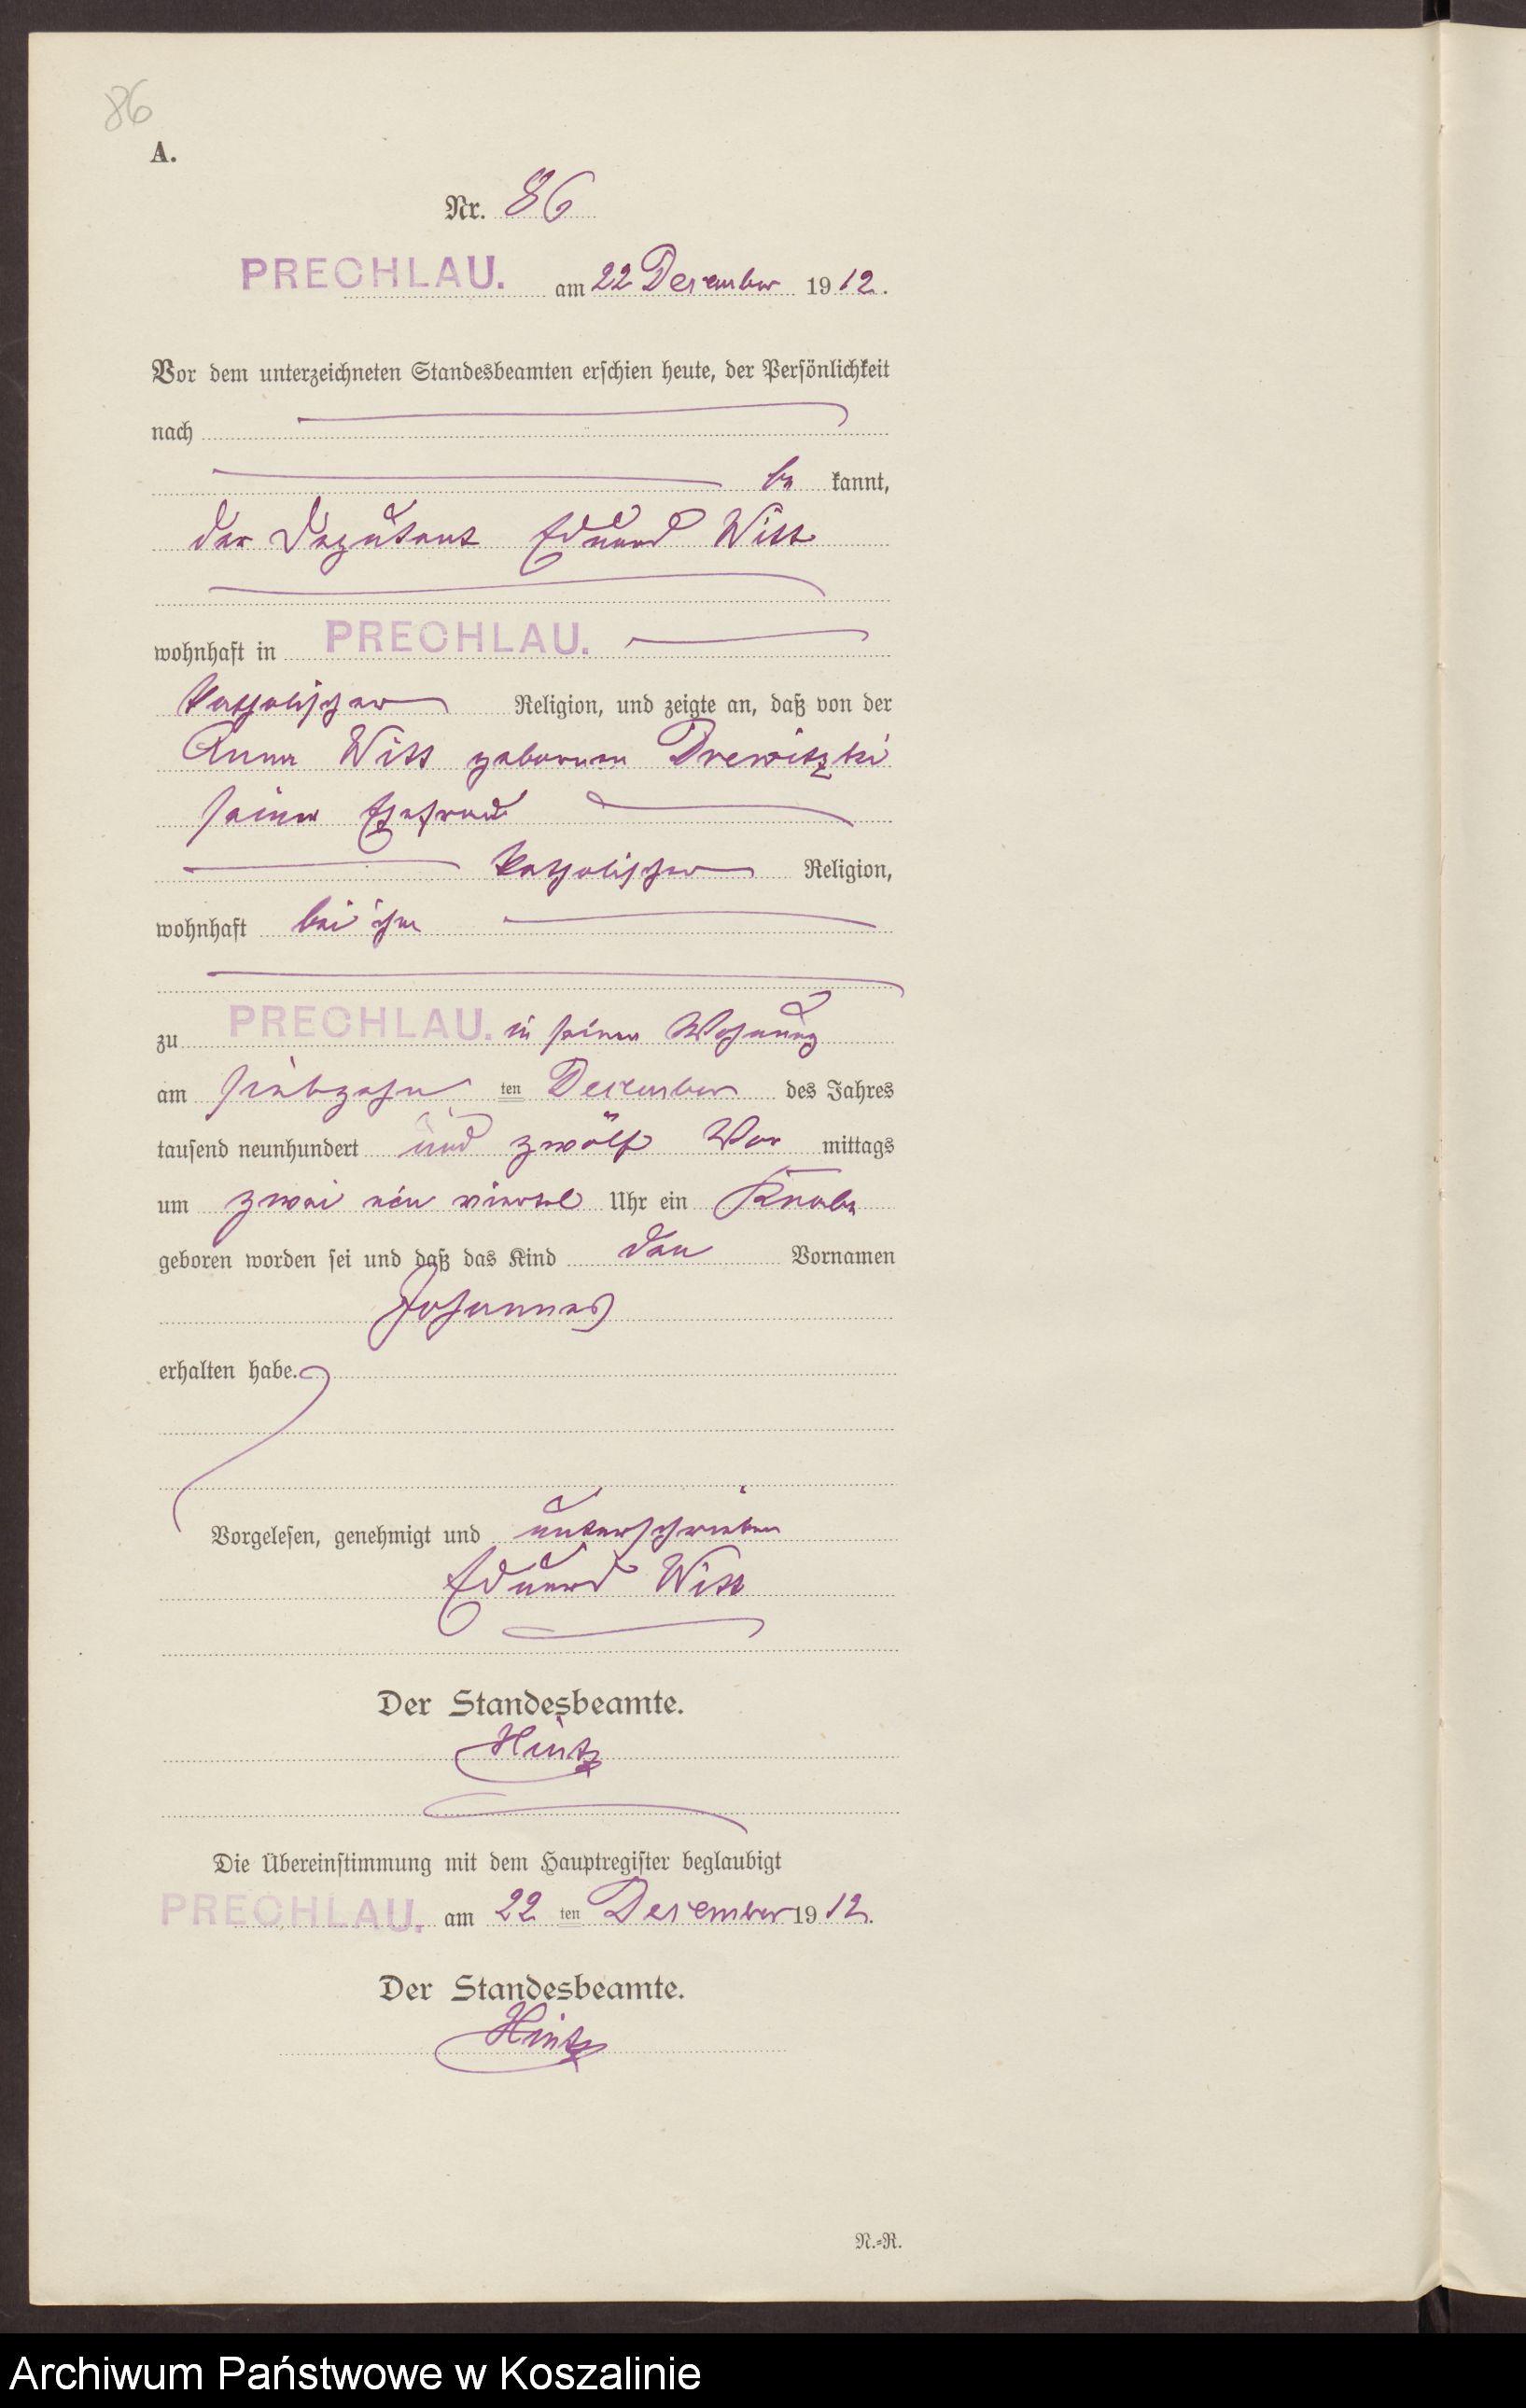 86
A.
Nr. 86
PRECHLAU. am 22 Dezember 1912.
Vor dem unterzeichneten Standesbeamten erschien heute, der Persönlichkeit
nach
be kannt,
der Deputant Eduard Witt
wohnhaft in PRECHLAU.
katholischer Religion, und zeigte an, daß von der
Anna Witt geborenen Drewitzki
seiner Ehefrau
katholischer Religion,
wohnhaft bei ihm
zu PRECHLAU. in seiner Wohnung
am siebzehn ten Dezember des Jahres
tausend neunhundert und zwölf Vor mittags
um zwei ein viertel Uhr ein Knabe
geboren worden sei und daß das Kind den Vornamen
Johannes
erhalten habe.
Vorgelesen, genehmigt und unterschrieben
Eduard Witt
Der Standesbeamte.
Hintz
Die Übereinstimmung mit dem Hauptregister beglaubigt
PRECHLAU. am 22 ten Dezember 1912.
Der Standesbeamte.
Hintz
N.=R.
Archiwum Państwowe w Koszalinie